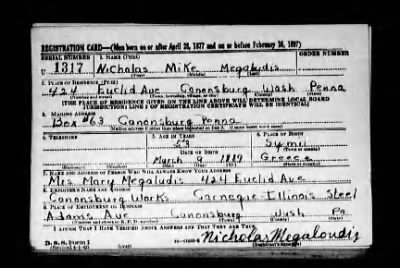 REGISTRATION CARD—(Men born on or after April 28, 1877 and on or before February 16, 1897)
SERIAL NUMBER 1. NAME (Print) ORDER NUMBER
U 1317 Nicholas Mike Megaludis
(First) (Middle) (Last)
2. PLACE OF RESIDENCE (Print)
424 Euclid Ave Canonsburg Wash Penna
(Number and street) (Town, township, village, or city) (County) (State)
[THE PLACE OF RESIDENCE GIVEN ON THE LINE ABOVE WILL DETERMINE LOCAL BOARD
JURISDICTION; LINE 2 OF REGISTRATION CERTIFICATE WILL BE IDENTICAL]
3. MAILING ADDRESS
Box #63 Canonsburg Penna
[Mailing address if other than place indicated on line 2. If same insert word same]
4. TELEPHONE 5. AGE IN YEARS 6. PLACE OF BIRTH
53 Symi
DATE OF BIRTH (Town or county)
March 9 1889 Greece
(Mo.) (Day) (Yr.) (State or country)
7. NAME AND ADDRESS OF PERSON WHO WILL ALWAYS KNOW YOUR ADDRESS
Mrs. Mary Megaludis 424 Euclid Ave
8. EMPLOYER'S NAME AND ADDRESS
Canonsburg Works Carnegie-Illinois Steel
9. PLACE OF EMPLOYMENT OR BUSINESS
Adams Ave Canonsburg Wash Pa.
(Number and street or R. F. D. number) (Town) (County) (State)
I AFFIRM THAT I HAVE VERIFIED ABOVE ANSWERS AND THAT THEY ARE TRUE.
D. S. S. Form 1
Nicholas Megaloudis
(Registrant's signature)